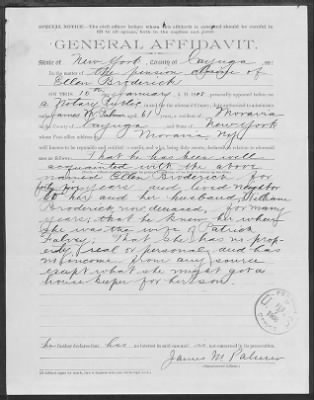 SPECIAL NOTICE.—The civil officer before whom this affidavit is executed should be careful to
fill in all spaces, both in the caption and jurat.
GENERAL AFFIDAVIT.
State of New York, County of Cayuga, ss:
In the matter of the pension claim of
Ellen Broderick
ON THIS 15th day of January A. D. 1908, personally appeared before me
a Notary Public in and for the aforesaid County, duly authorized to administer
oaths James M. Palmer aged 61 years, a resident of Moravia
in the County of Cayuga and State of New York
whose Post-office address is Moravia, N.Y.
well known to be reputable and entitled to credit, and who, being duly sworn, declared in relation to aforesaid
case as follows: That he has been well
acquainted with the above
named Ellen Broderick for
forty five years and lived neighbor
to her and her husband, William
Broderick now deceased, for many
years; that he knew her when
she was the wife of Patrick
Falvey; That she has no prop-
erty, real or personal, and has
no income from any source
except what she might get as
house keeper for her son.
he further declares that he has no interest in said case and is not concerned in its prosecution.
James M. Palmer
(Signature of Affiant.)